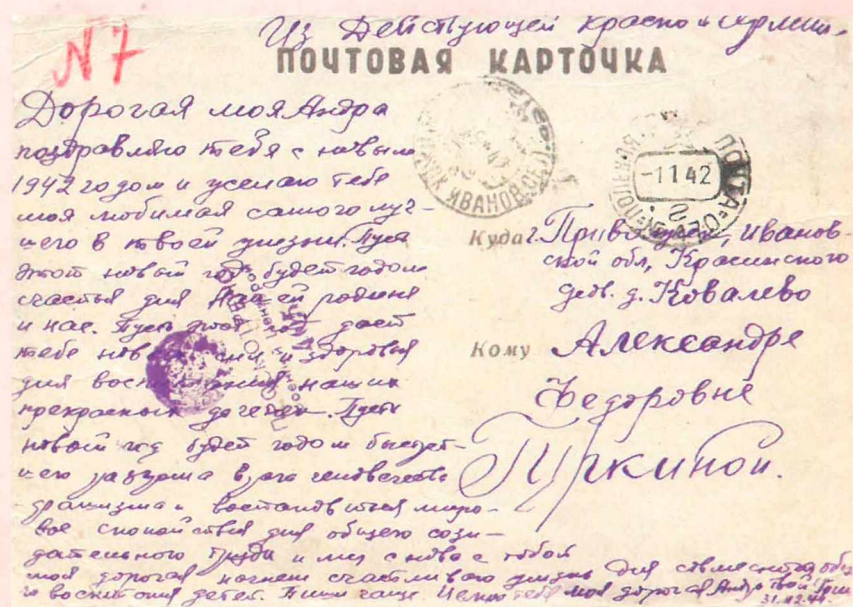 N 7
Из Действующей Красной Армии.
ПОЧТОВАЯ КАРТОЧКА
Дорогая моя Андра
поздравляю тебя с новым
1942 годом и желаю тебе
моя любимая самого луч-
шего в твоей жизни. Пусть
этот новый год будет годом
счастья для нашей родины
и нас. Пусть этот год дает
тебе новых сил и здоровья
для воспитания наших
прекрасных детей. Пусть
новый год будет годом быстрей-
шего врага человечества
фашизма и мира-
вое спокойствия для общего сози-
дательного труда и мы снова с тобой
моя дорогая начнем счастливую жизнь для совместного
воспитания детей. Пиши чаще. Целую тебя моя дорогая Андра твой
31.12.41.
ИВАНОВ.ОБЛ.
ПОЛЕВАЯ ПОЧТА
-1 1 42
Куда г. Приволжск, Иванов-
ской обл, Краснинского
д. Ковалево
Кому Александре
Федоровне